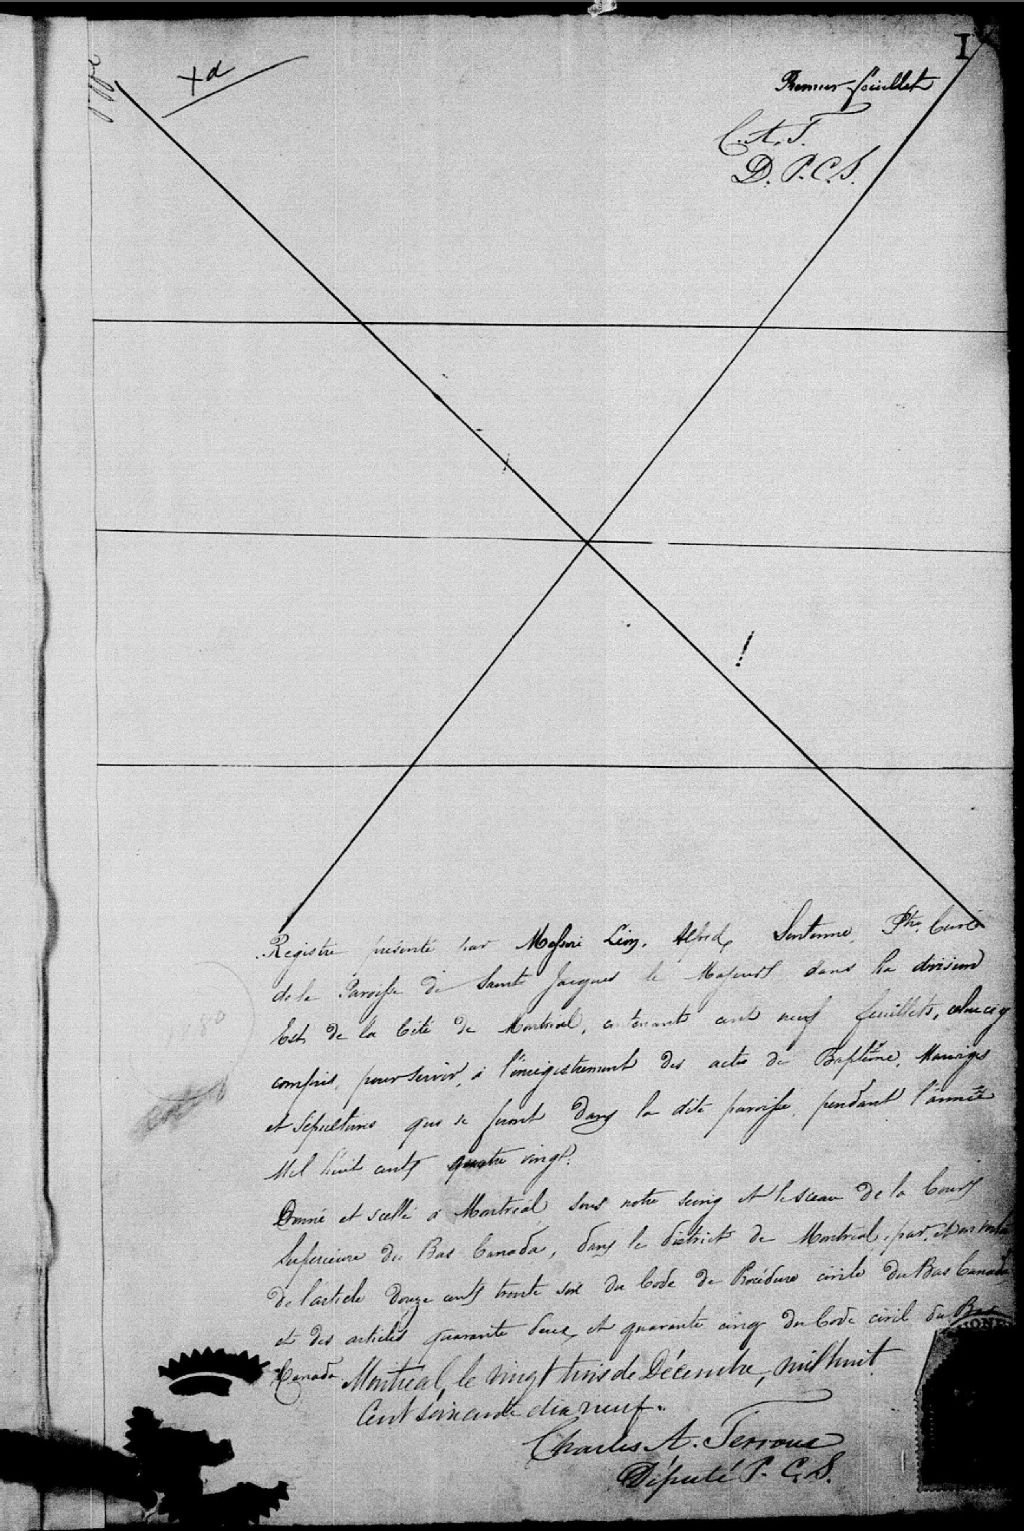 1
Premier feuillet
C. A. T.
D. P. C. S.
Registre présenté par Messire Léon Alfred Sentenne Ptre Curé
de la Paroisse de Saint Jacques le Majeur dans la division
Est de la Cité de Montréal, contenant cent neuf feuillets, celui ci y
compris, pour servir, à l'enregistrement des actes de Baptême, Mariages
et Sépultures qui se feront dans la dite paroisse, pendant l'année
Mil huit cent quatre vingt.
Donné et scellé à Montréal sous notre seing et le sceau de la Cour
Supérieure du Bas Canada, dans le district de Montréal, par et en vertu
de l'article douze cent trente six du Code de Procédure civile du Bas Canada
et des articles quarante deux et quarante cinq du Code civil du Bas
Canada Montréal, le vingt trois de Décembre, mil huit
Cent soixante dix neuf.
Charles A. Terroux
Député P. C. S.